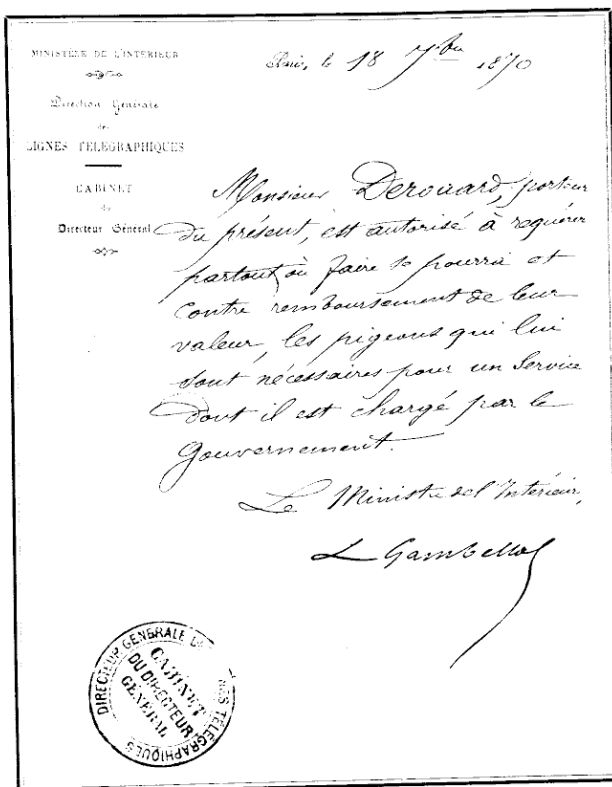 MINISTÈRE DE L'INTÉRIEUR
Paris, le 18 7bre 1870
Direction Générale
des
LIGNES TÉLÉGRAPHIQUES
CABINET
du
Directeur Général
Monsieur Derouard, porteur
du présent, est autorisé à requérir
partout où faire se pourra et
contre remboursement de leur
valeur, les pigeons qui lui
sont nécessaires pour un Service
dont il est chargé par le
Gouvernement.
Le Ministre de l'Intérieur,
L Gambetta
DIRECTEUR GENERALE TÉLÉGRAPHIQUES
CABINET
DU DIRECTEUR
GÉNÉRAL